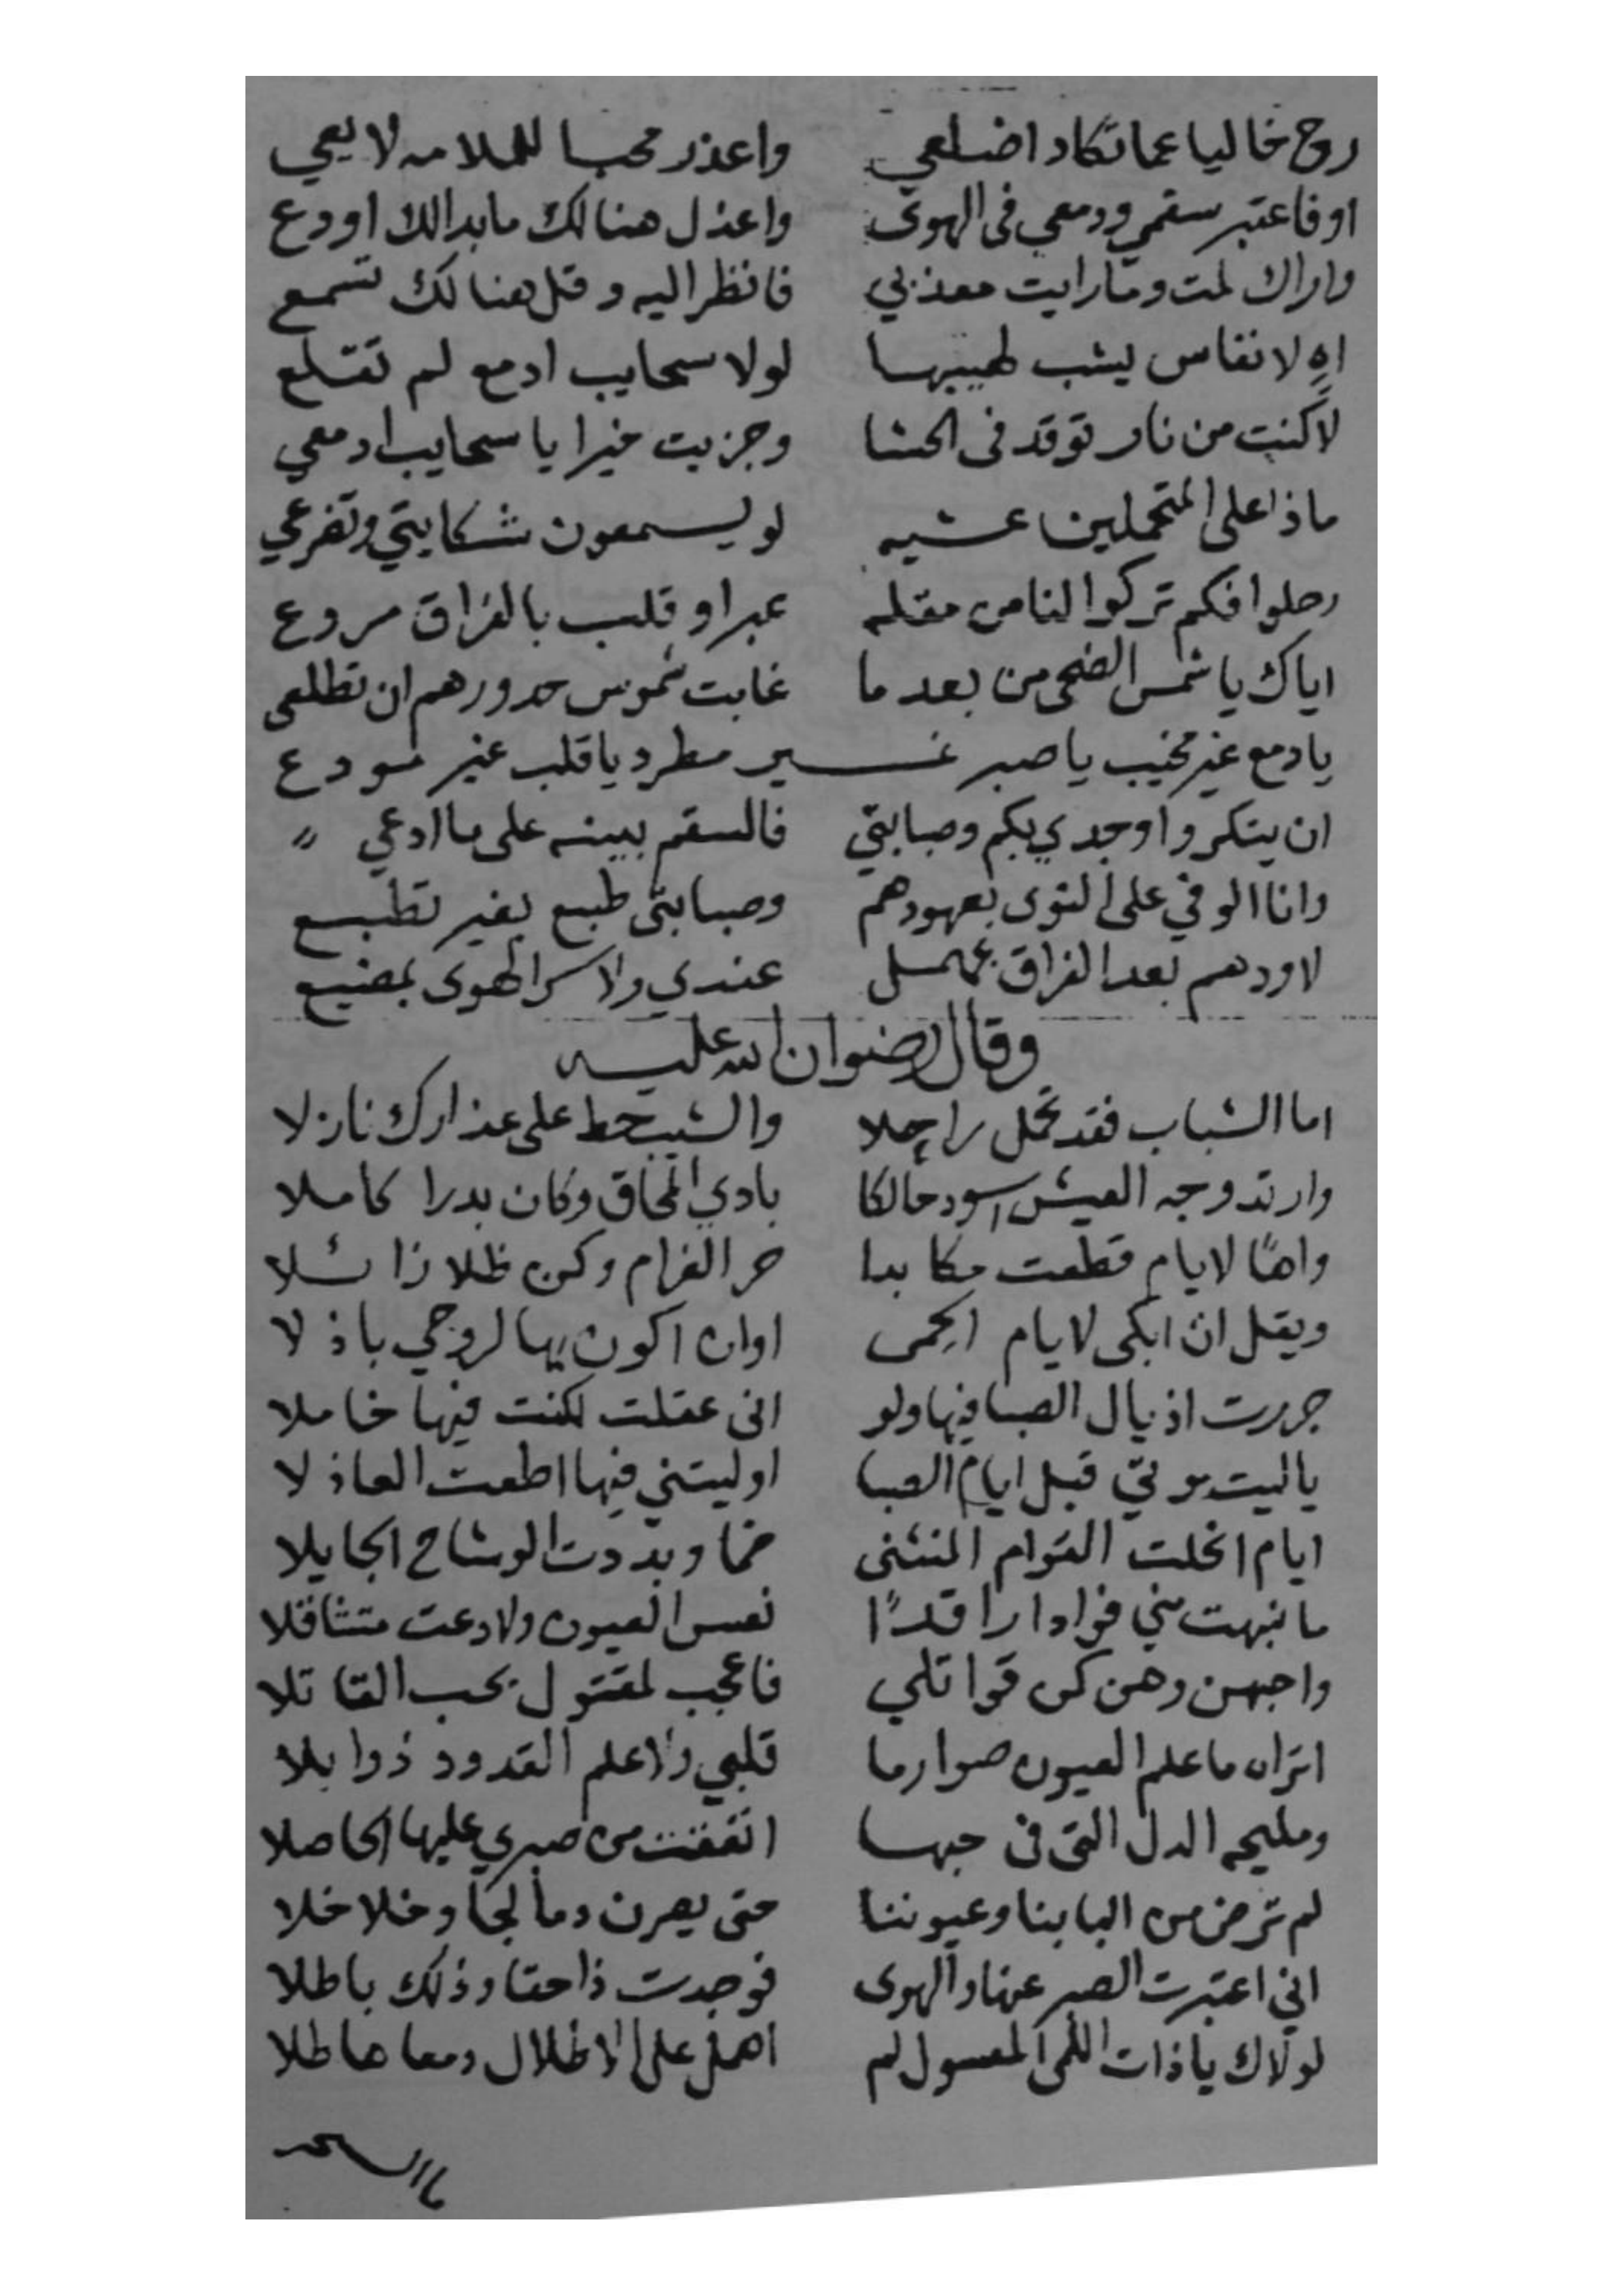 روح خاليا عما تكاد اضلعي واعذر محبا للملامه لا يعي
او فاعتبر سقمي ودمعي فى الهوى واعذل هنالك مابدالك اودع
واراك لمت وما رايت معذبي فانظر اليه وقل هنالك تسمع
اهٍ لانفاس يشب لهيبها لولا سحايب ادمع لم تقلع
لا كنت من نار توقد فى الحشا وجزيت خيرا يا سحايب ادمعي
ماذا على المتحملين عشيه لو يسمعون شكايتي وتضرعي
رحلوا فكم تركوا لنا من مقله عبرا وقلب بالفراق مروع
اياك يا شمس الضحى من بعد ما غابت شموس خدورهم ان تطلعى
يا دمع غير مخيب يا صبر غير مطرد يا قلب غير مودع
ان ينكروا وجدي بكم وصبابتي فالسقم بينه على ما ادعي
وانا الوفي على النوى بعهودهم وصبابتى طبع بغير تطبع
لا ودهم بعد الفراق بمهمل عندي ولا سر الهوى بمضيع
وقال رضوان الله عليه
اما الشباب فقد تحمل راحلا والشيب حط على عذارك نازلا
وارتد وجه العيش اسود حالكا بادي المحاق وكان بدرا كاملا
واهًا لايام قطعت مكابدا حر الغرام وكن ظلا زائلا
ويقل ان ابكى لايام الحمى اوان اكون بها لروحي باذلا
جررت اذيال الصبا فيها ولو انى عقلت لكنت فيها خاملا
ياليت موتي قبل ايام الصبا او ليتني فيها اطعت العاذلا
ايام انحلت القوام المنثنى ضما وبددت الوشاح الجايلا
ما نبهت مني فوادا راقدًا نعس العيون ولا دعت متثاقلا
واحبهن وهن كن قواتلي فاعجب لمقتول يحب القاتلا
اتراه ما علم العيون صوارما قلبي ولا علم القدود ذوابلا
ومليحه الدل التى فى حبها انفقت من صبري عليها الحاصلا
لم ترض من البابنا وعيوننا حتى يصرن دمالجا وخلاخلا
اني اعتبرت الصبر عنها والهوى فوجدت ذا حقا وذلك باطلا
لولاك يا ذات اللمى المعسول لم اهمل على الاطلال دمعا هاطلا
ما السحر